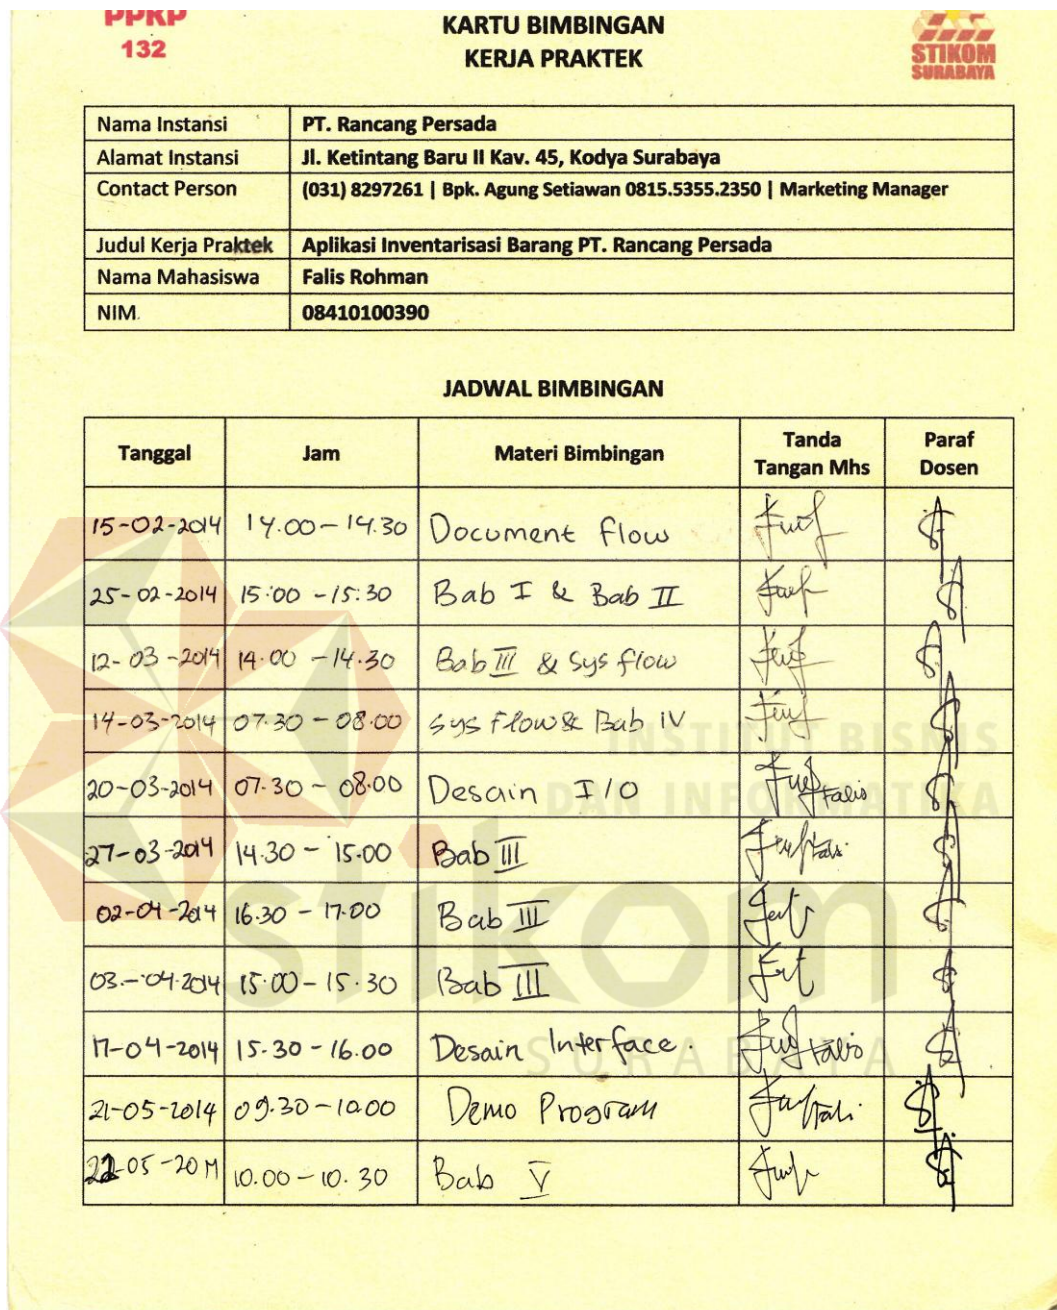 PPKP
132
KARTU BIMBINGAN
KERJA PRAKTEK
STIKOM
SURABAYA
Nama Instansi PT. Rancang Persada
Alamat Instansi Jl. Ketintang Baru II Kav. 45, Kodya Surabaya
Contact Person (031) 8297261 | Bpk. Agung Setiawan 0815.5355.2350 | Marketing Manager
Judul Kerja Praktek Aplikasi Inventarisasi Barang PT. Rancang Persada
Nama Mahasiswa Falis Rohman
NIM. 08410100390
JADWAL BIMBINGAN
Tanggal Jam Materi Bimbingan Tanda Tangan Mhs Paraf Dosen
15-02-2014 14.00-14.30 Document flow
25-02-2014 15.00-15.30 Bab I & Bab II
12-03-2014 14.00-14.30 Bab III & Sys flow
14-03-2014 07.30-08.00 Sys Flow & Bab IV
20-03-2014 07.30-08.00 Desain I/O Falis
27-03-2014 14.30-15.00 Bab III
02-04-2014 16.30-17.00 Bab III
03-04-2014 15.00-15.30 Bab III
17-04-2014 15.30-16.00 Desain Interface. Falis
21-05-2014 09.30-10.00 Demo Program
22-05-2014 10.00-10.30 Bab V
INSTITUT BISNIS
DAN INFORMATIKA
stikom
SURABAYA